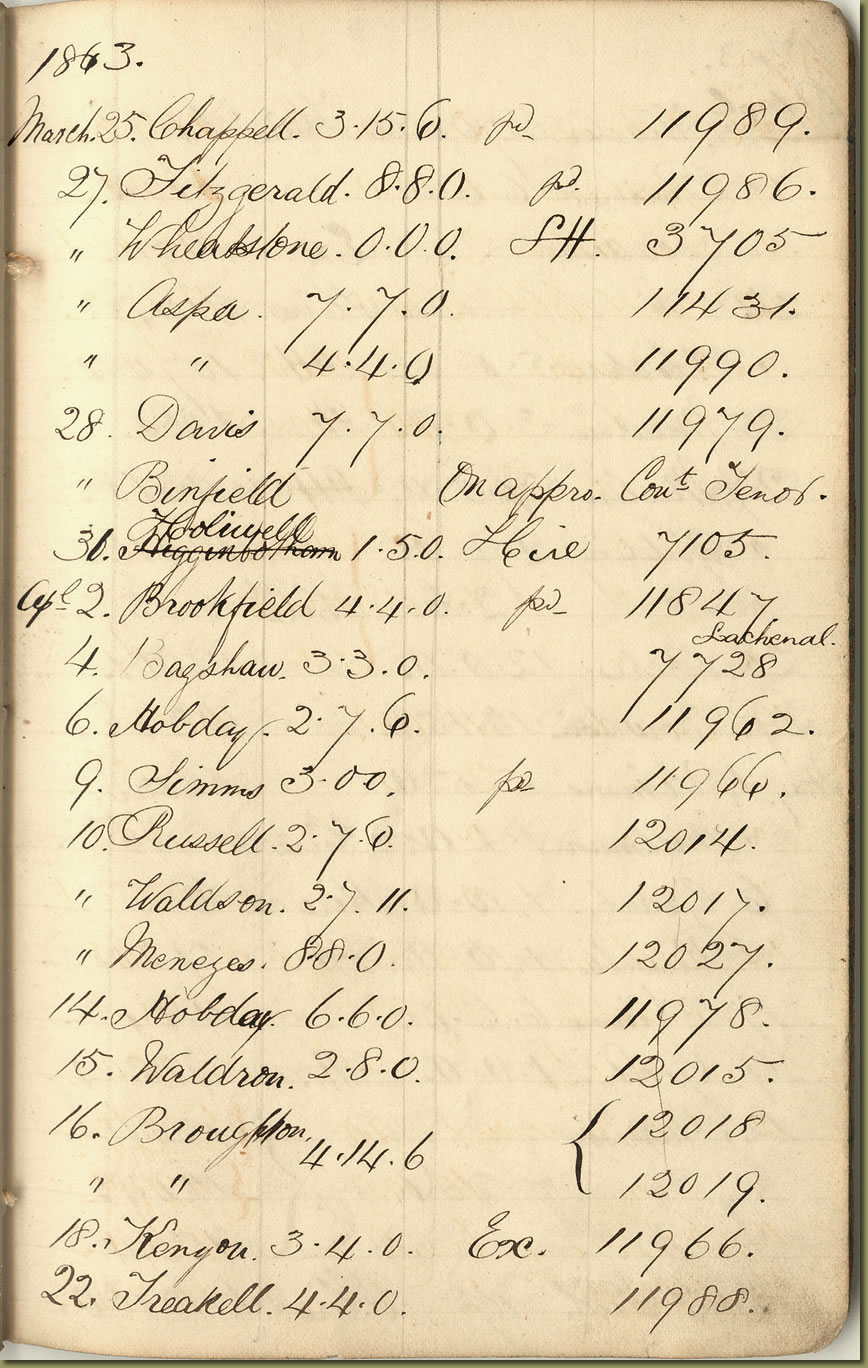 1863.
March. 25. Chappell. 3.15.6. pd 11989.
27. Fitzgerald. 8.8.0. pd. 11986.
" Wheatstone. 0.0.0. SH. 3705
" Aspa. 7.7.0. 11431.
" " 4.4.0 11990.
28. Davis 7.7.0. 11979.
" Binfield On appro. Cont Tenor.
Holiwell
30. Higginbotham 1.5.0. Hire 7105.
Apl 2. Brookfield 4.4.0. pd 11847
Lachenal.
4. Bagshaw. 3.3.0. 7728
6. Hobday. 2.7.6. 11962.
9. Simms 3.00. pd 11966.
10. Russell. 2.7.6. 12014.
" Waldson. 2.7.11. 12017.
" Menezes. 8.8.0. 12027.
14. Hobday. 6.6.0. 11978.
15. Waldron. 2.8.0. 12015.
16. Broughton, 4.14.6 { 12018
" " 12019.
18. Kenyon. 3.4.0. Ex. 11966.
22. Treakell. 4.4.0. 11988.